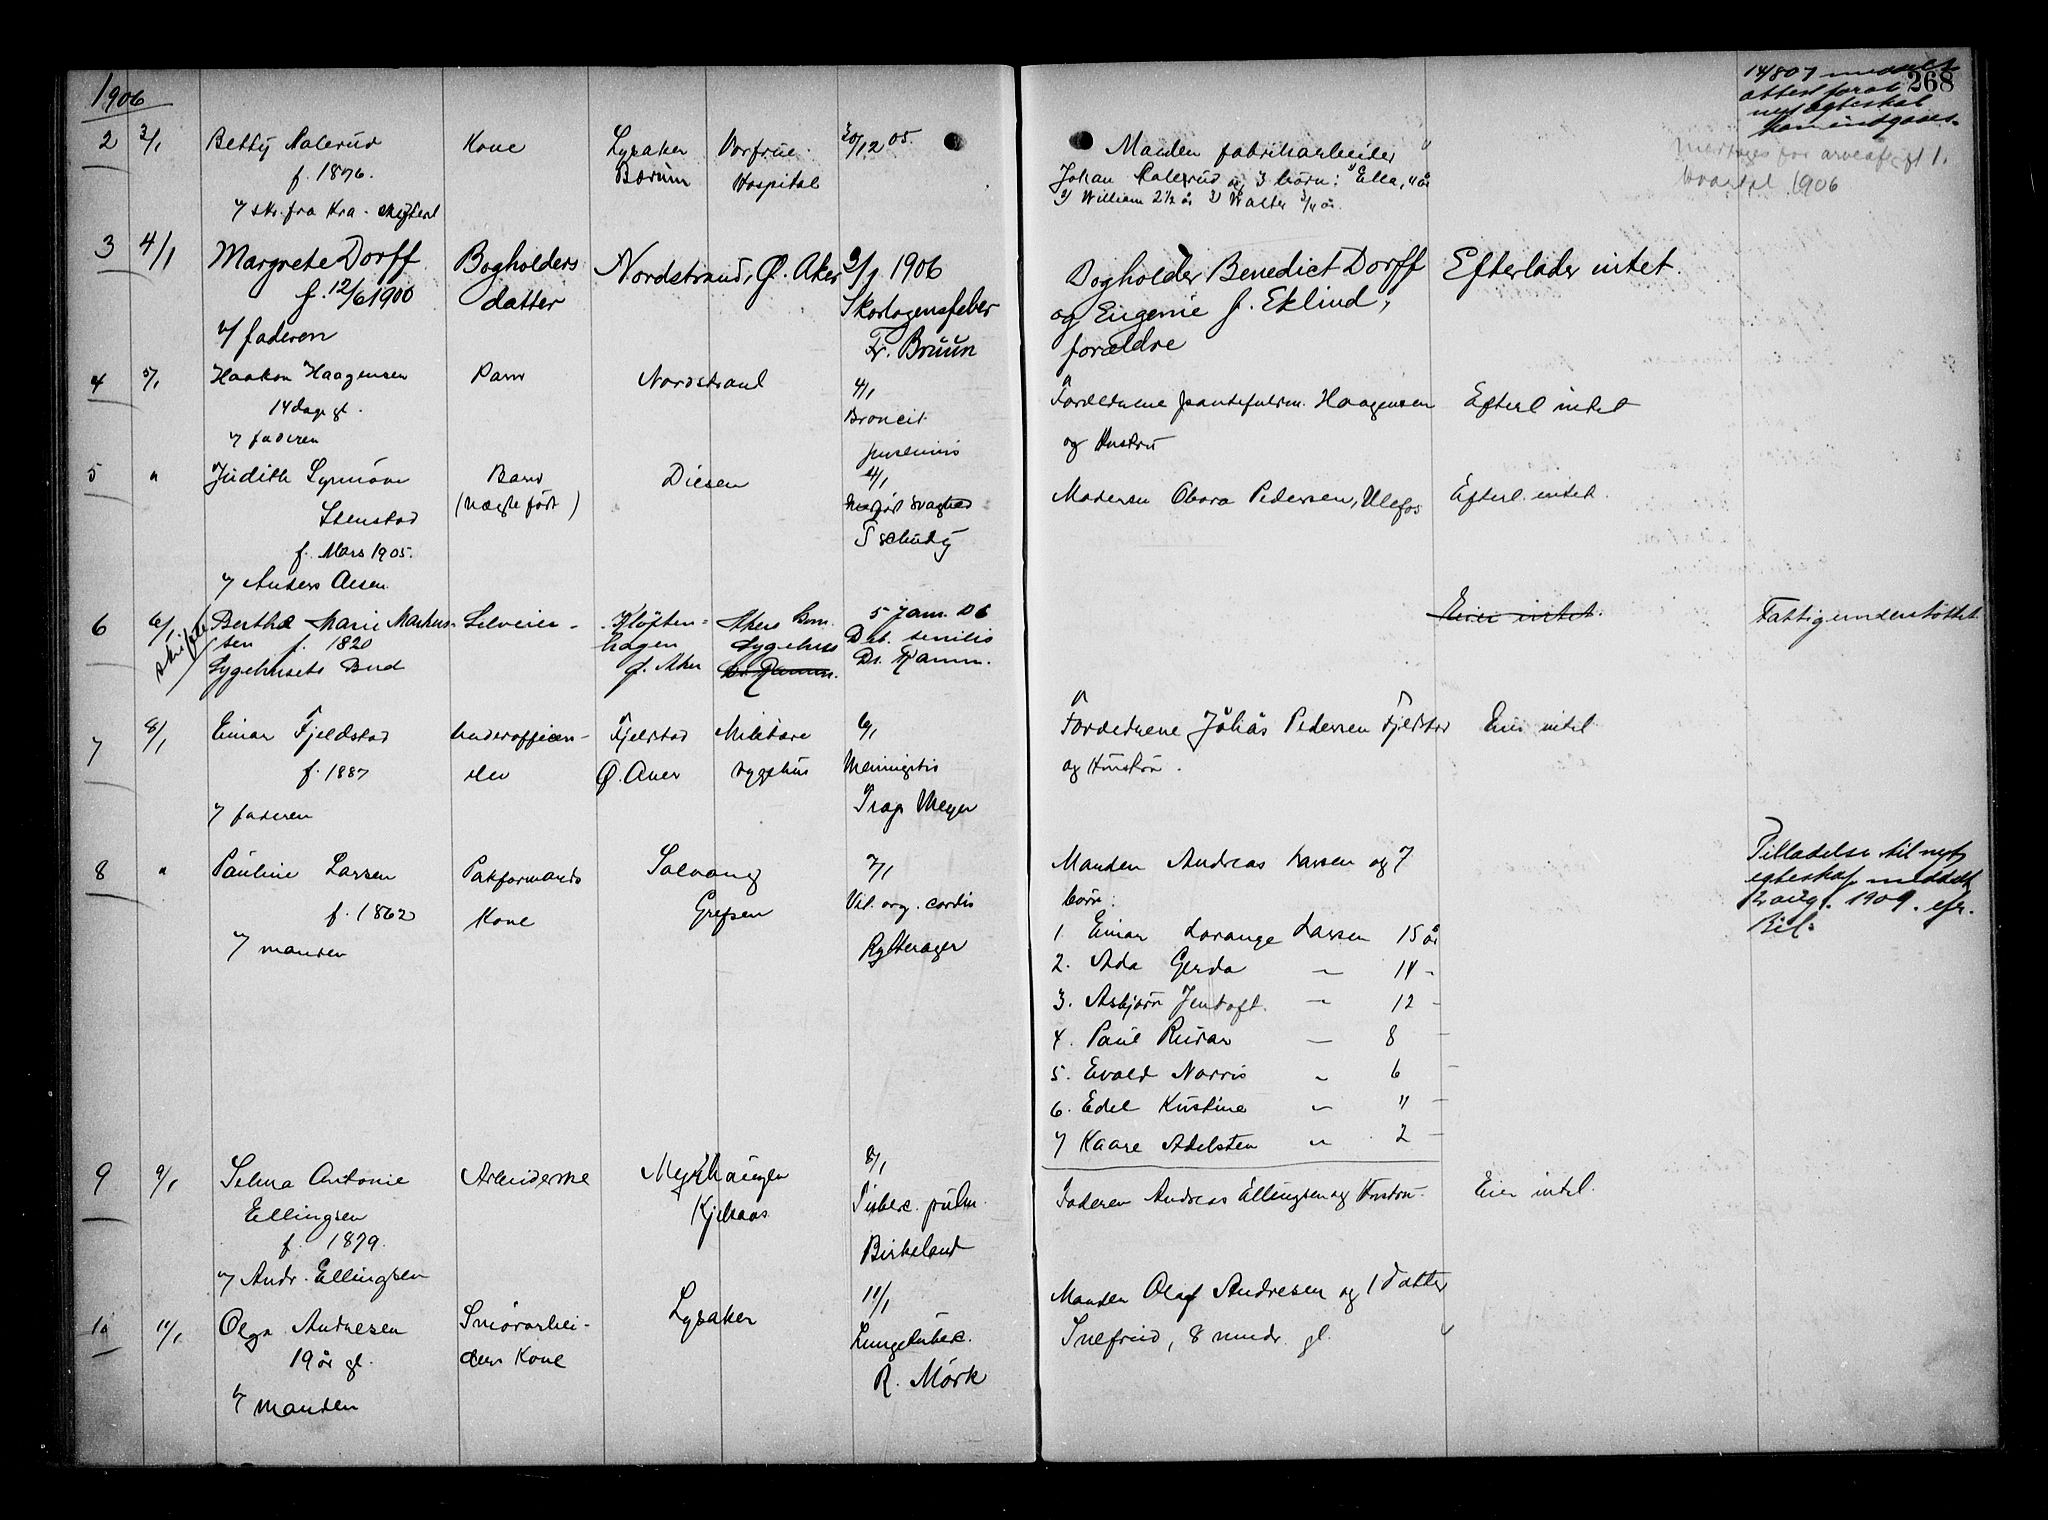 1906
268
14/8 07 meddelt
attest for at
nyt ægteskab
kan indgaaes.
1906
2 3/1 Betty Kalerud Kone Lysaker Vorfrue 30/12 05. Manden fabrikarbeider
f. 1876. Bærum Hospital Johan Kalerud og 3 børn: 1) Ella, 4 år
v/ skr. fra Kra. skifteret 2) William 2 1/2 år 3) Walter 3/4 år.
3 4/1 Margrete Dorff Bogholders Nordstrand, Ø. Aker 3/1 1906 Bogholder Benedict Dorff Efterlader intet.
f. 12/6 1900 datter Skarlagensfeber og Eugenie f. Eklind,
v/ faderen Fr. Bruun forældre
4 5/1 Haakon Haagensen Barn Nordstrand 4/1 Forældrene Haagensen Efterl intet
14 dage gl. Broncit og Hustru
v/ faderen
5 " Judith Synnöve Barn Diesen 4/1 Moderen Olava Pedersen, Ulefos Efterl. intet.
Stenstad (uægte født) Medfød svaghed
f. Mars 1905. Tschudy
v/ Anders Olsen
6 6/1 Berthe Marie Markus- Selveier- Kløften- Akers Kom. 5 Jan. 06 Eier intet. Fattigunderstøttet
skifte sen f. 1820 hagen Sygehus Deb. senilis
Sygehusets Bud Ø. Aker Dr. Tjamm.
7 8/1 Einar Fjeldstad Underofficers- Fjelstad Militære 6/1 Forældrene Johas Pedersen Fjeldstad Eier intet
f. 1887 elev Ø. Aker sygehus Meningitis og Hustru.
v/ faderen Trap Meyer
8 " Pauline Larsen Pakformands Solvang 7/1 Manden Andreas Larsen og 7 Tilladelse til nyt
f. 1862 Kone Grefsen Vit. org. cordis børn: egteskap meddelt
v/ manden Rytterager 1 Einar Lorange Larsen 15 år 12 aug. 1909. efr.
Bil.
2. Ada Gerda — 14 -
3. Asbjørn Jentoft. — 12 -
4. Paul Ruvar — 8 —
5. Evald Norris " 6 —
6. Edel Kristine " 4 —
7 Kaare Adelsten " 2 —
9 9/1 Selma Antonie Arbeiderske Myrhaugen 8/1 Faderen Andreas Ellingsen og Hustru. Eier intet.
Ellingsen Kjelsaas Tuberc. pulm.
f. 1879. Birkeland
v/ Andr. Ellingsen
10 11/1 Olga Andresen Smörarbei- Lysaker 11/1 Manden Olaf Andresen og 1 datter
19 år gl. ders Kone Lungetuberc. Snefrid, 8 mndr. gl.
v/ manden R. Mörk